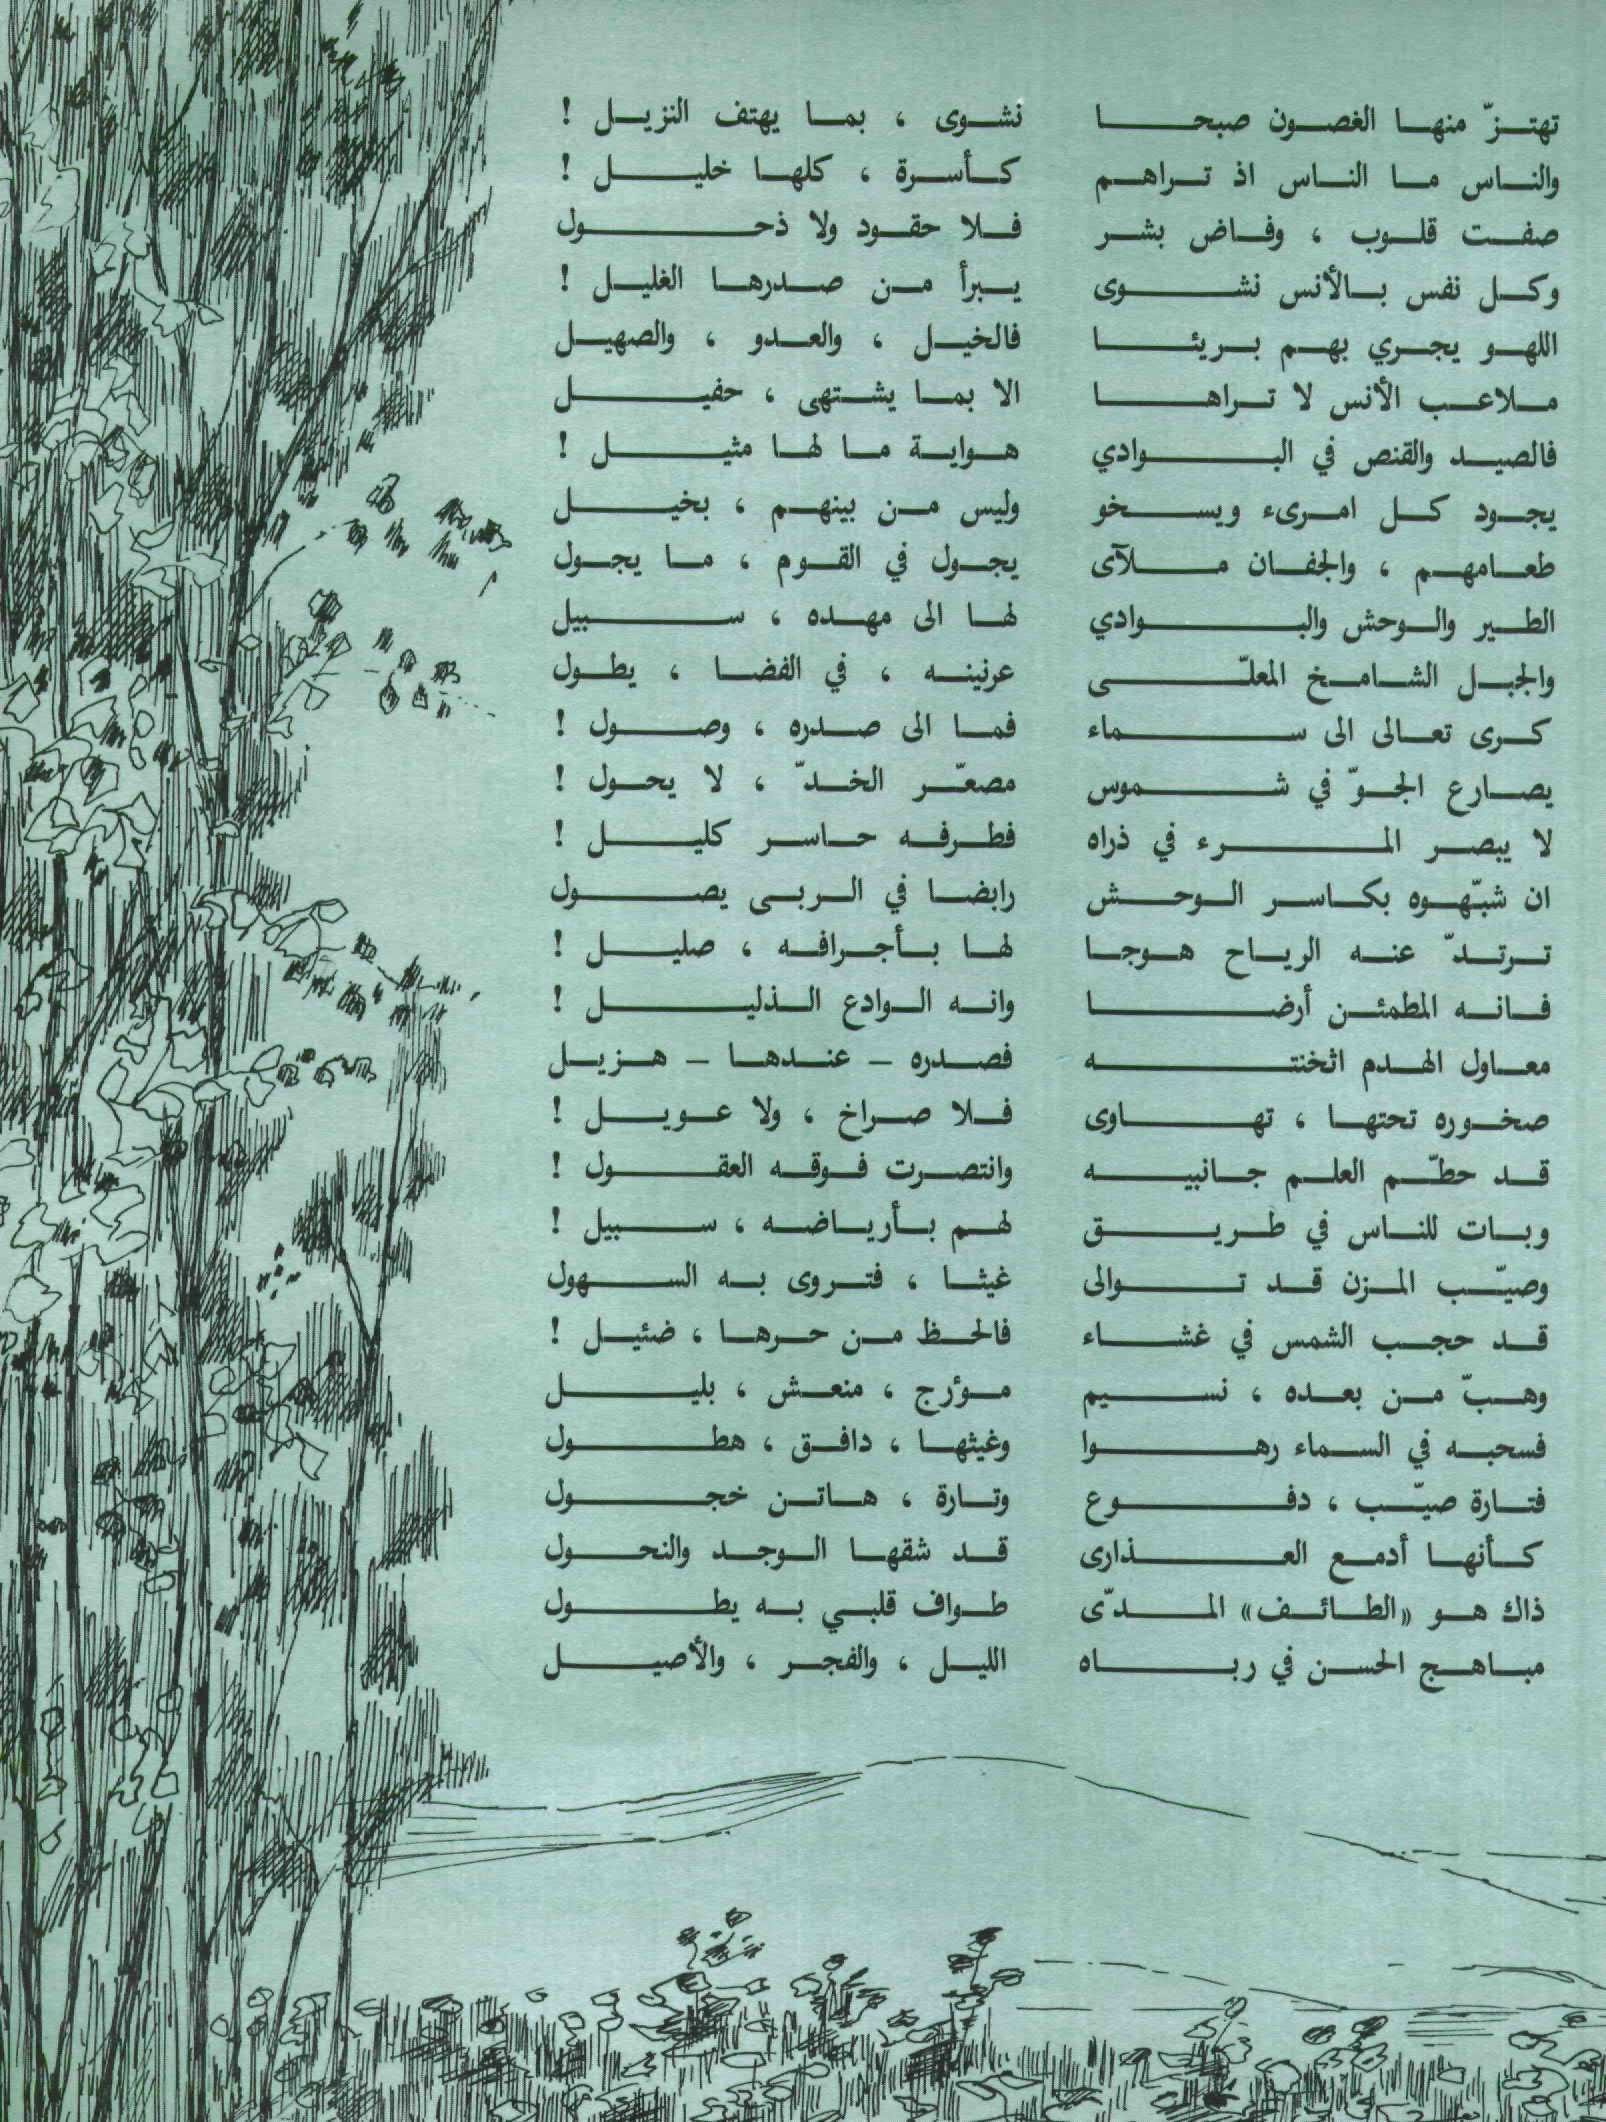 تهتزّ منها الغصون صبحا نشوى ، بما يهتف النزيل !
والناس ما الناس اذ تراهم كأسرة ، كلها خليل !
صفت قلوب ، وفاض بشر فلا حقود ولا ذحول
وكل نفس بالأنس نشوى يبرأ من صدرها الغليل !
اللهو يجري بهم بريئا فالخيل ، والعدو ، والصهيل
ملاعب الأنس لا تراها الا بما يشتهى ، حفيل
فالصيد والقنص في البوادي هواية ما لها مثيل !
يجود كل امرىء ويسخو وليس من بينهم ، بخيل
طعامهم ، والجفان ملآى يجول في القوم ، ما يجول
الطير والوحش والبوادي لها الى مهده ، سبيل
والجبل الشامخ المعلّى عرنينه ، في الفضا ، يطول
كرى تعالى الى سماء فما الى صدره ، وصول !
يصارع الجوّ في شموس مصعّر الخدّ ، لا يحول !
لا يبصر المرء في ذراه فطرفه حاسر كليل !
ان شبّهوه بكاسر الوحش رابضا في الربى يصول
ترتدّ عنه الرياح هوجا لها بأجرافه ، صليل !
فانه المطمئن أرضا وانه الوادع الذليل !
معاول الهدم اثخنته فصدره – عندها – هزيل
صخوره تحتها ، تهاوى فلا صراخ ، ولا عويل !
قد حطّم العلم جانبيه وانتصرت فوقه العقول !
وبات للناس في طريق لهم بأرياضه ، سبيل !
وصيّب المزن قد توالى غيثا ، فتروى به السهول
قد حجب الشمس في غشاء فالحظ من حرها ، ضئيل !
وهبّ من بعده ، نسيم مؤرج ، منعش ، بليل
فسحبه في السماء رهوا وغيثها ، دافق ، هطول
فتارة صيّب ، دفوع وتارة ، هاتن خجول
كأنها أدمع العذارى قد شقها الوجد والنحول
ذاك هو «الطائف» المدّى طواف قلبي به يطول
مباهج الحسن في رباه الليل ، والفجر ، والأصيل